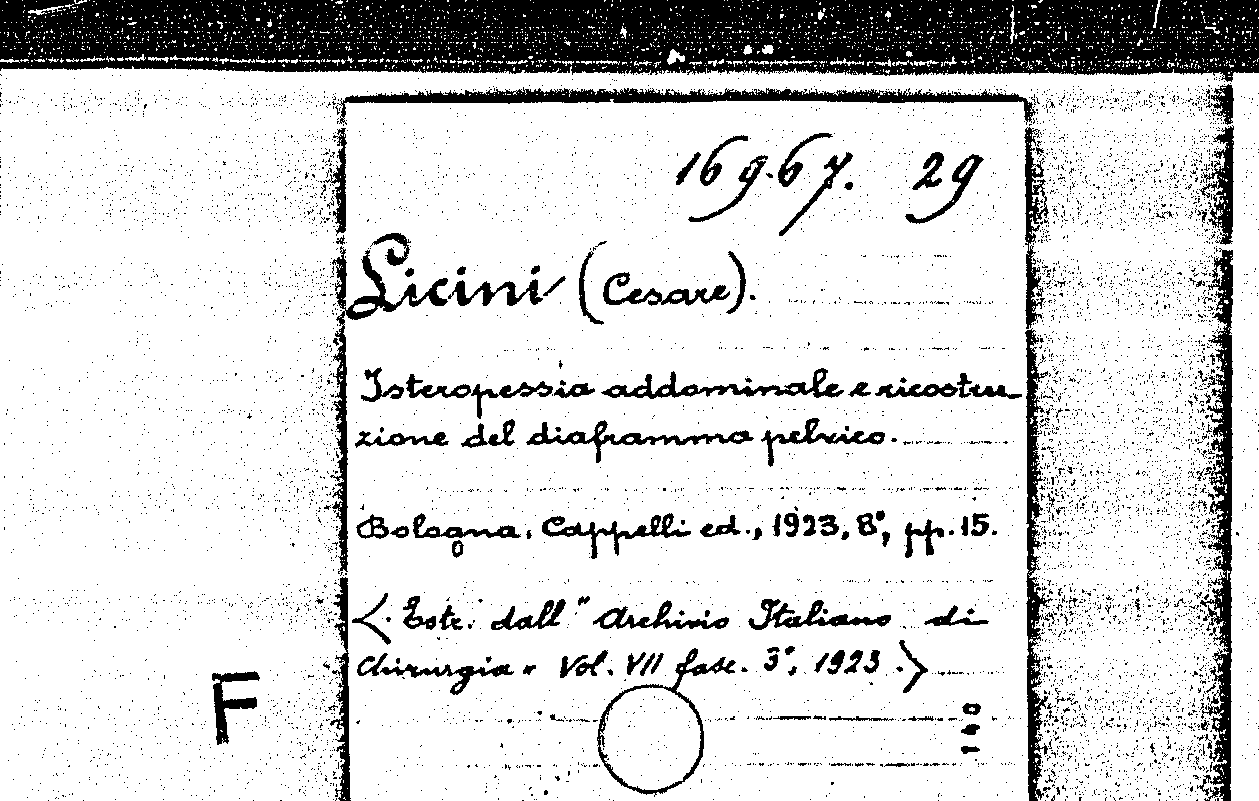 169.67. 29
Licini (Cesare).
Isteropessia addominale e ricostru-
zione del diaframma pelvico.
Bologna, Cappelli ed., 1923, 8°, pp. 15.
<. Estr. dall "Archivio Italiano di
Chirurgia" Vol. VII fasc. 3°, 1923.>
F
140